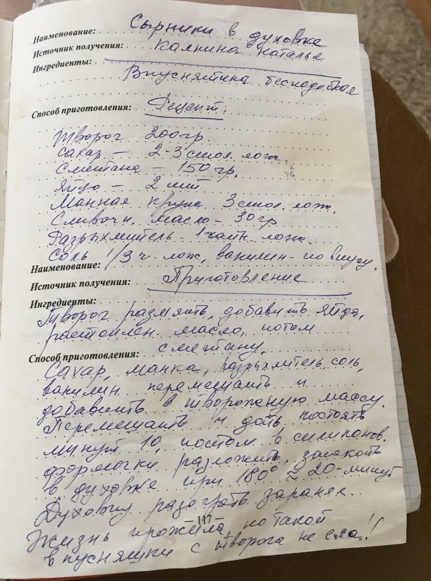 Наименование: Сырники в духовке
Источник получения: Калнина Наталье
Ингредиенты:
Впуснятина бесподобное
Способ приготовления: Рецепт:
Творог 200гр.
сахар – 2-3 стол. лож.
Сметана – 150 гр.
Яйцо – 2 шт
Манная крупа 3 стол. лож.
Сливочн. масло – 30 гр
Разрыхлитель 1 чайн. лож.
Соль 1/3 ч. лож, ванилин по вкусу.
Наименование:
Источник получения: Приготовление
Ингредиенты:
Творог размять, добавить яйца,
растоплен. масло, потом
Способ приготовления: сметану.
Сахар, манка, разрыхлитель, соль,
ванилин перемешать и
добавить в творожную массу.
Перемешать и дать постоять
минут 10, потом в силиконов.
формочки разложить, загнать
в духовке при 180° ≈ 20-минут
Духовку разогреть заранее.
- 117 -
Жизнь прожила, но такой
впусняшки с творога не ела!!